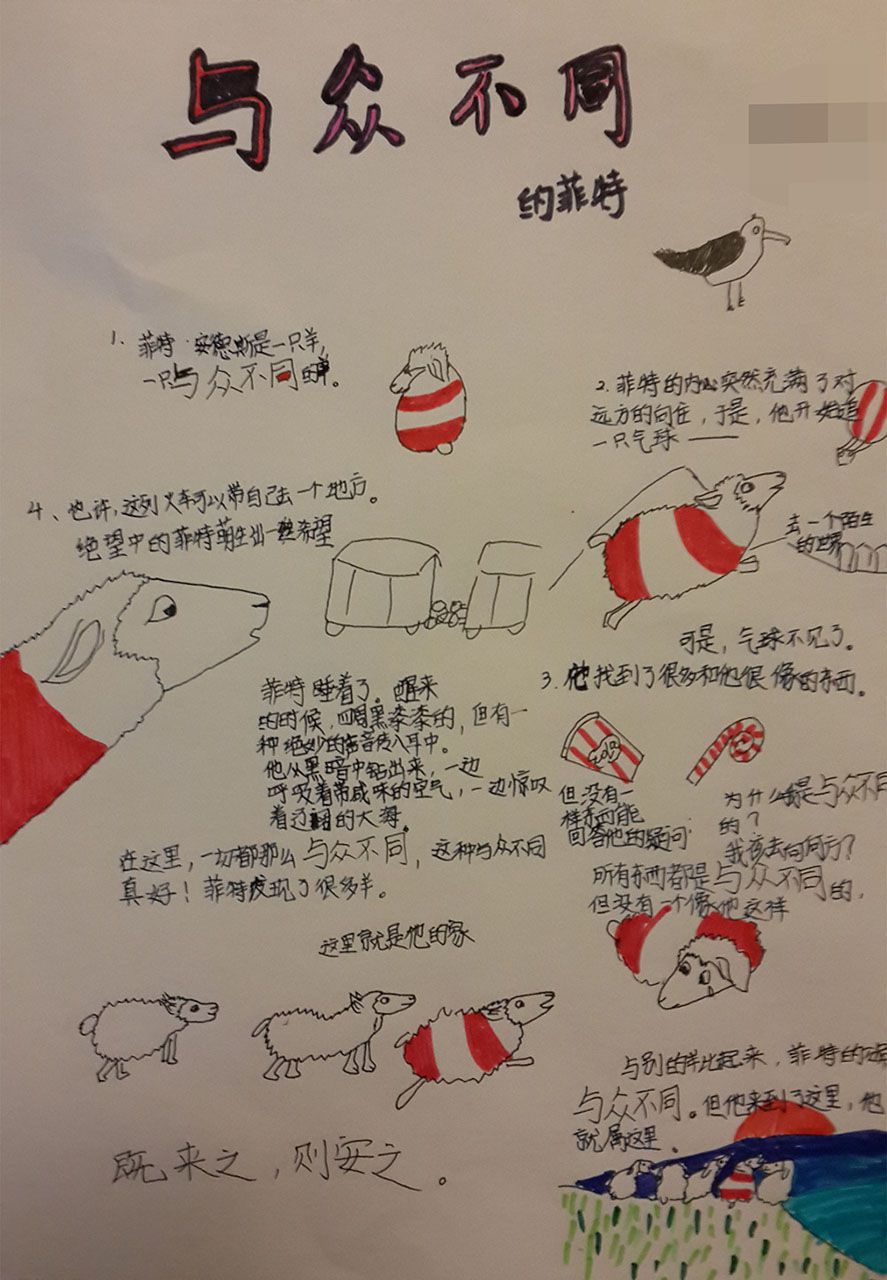 与众不同
的菲特
1. 菲特·安德斯是一只羊,
一只与众不同的羊。
2. 菲特的内心突然充满了对
远方的向往，于是，他开始追
一只气球——
去一个陌生
的世界
可是，气球不见了。
3. 他找到了很多和他很像的东西。
但没有一
样东西能
回答他的疑问
为什么我是与众不同
的？
我该去向何方？
所有东西都是与众不同的，
但没有一个像他这样
4、也许，这列火车可以带自己去一个地方。
绝望中的菲特萌生出一丝希望
菲特睡着了。醒来
的时候，四周黑漆漆的，但有一
种绝妙的声音传入耳中。
他从黑暗中钻出来，一边
呼吸着带咸味的空气，一边惊叹
着辽阔的大海。
在这里，一切都那么与众不同，这种与众不同
真好！菲特发现了很多羊。
这里就是他的家
与别的羊比起来，菲特的确
与众不同。但他来到了这里，他
就属这里。
既来之，则安之。